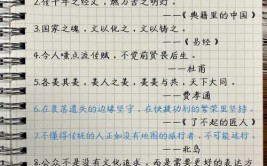 2.借千年之经文,燃万古之明灯。
——《典籍里的中国》
3.国家之魂,文以化之,文以铸之。
——《易经》
4.今人嗤点流传赋,不觉前贤畏后生。
——杜甫
5.各美其美,美人之美,美美与共,天下大同。
——费孝通
6.在衰落遗失的边缘坚守,在快捷功利的繁荣里坚持。
——《了不起的匠人》
7.不懂得传统的人正如没有地图的旅行者,不可能远行。
——北岛
8.公众不是没有文化追求,而是需要更好的表达方